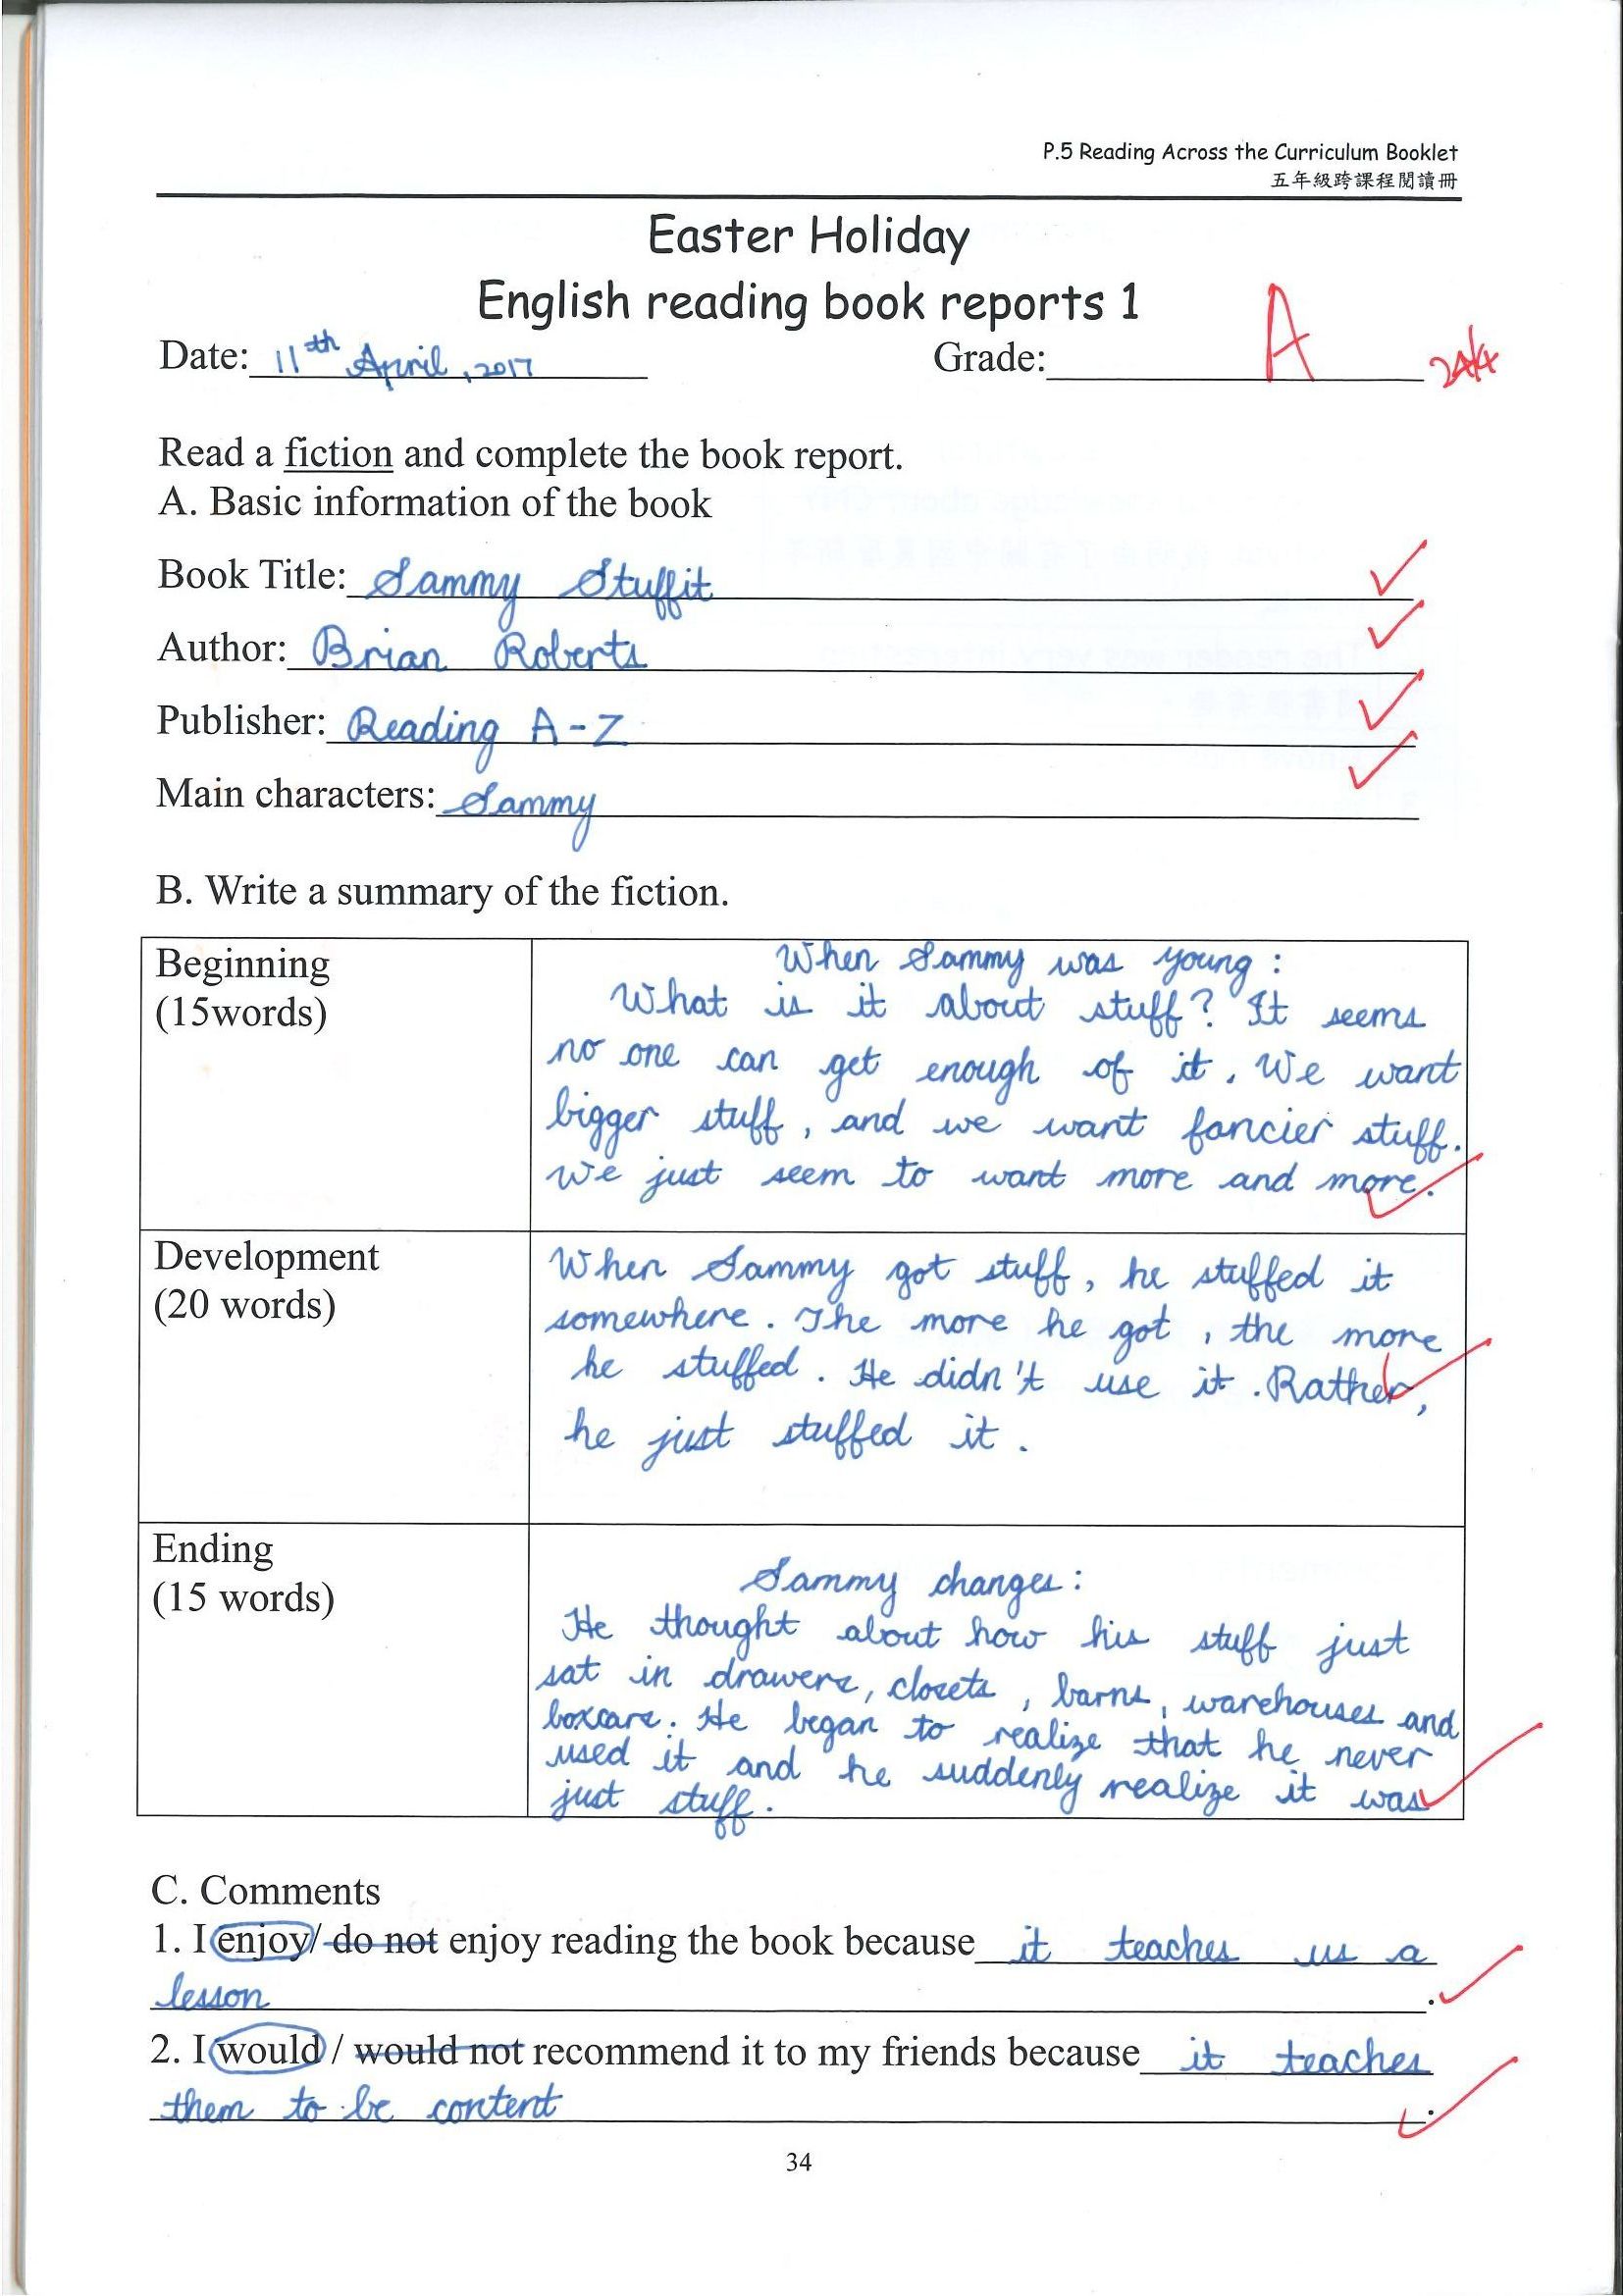 P.5 Reading Across the Curriculum Booklet
五年級跨課程閱讀冊
Easter Holiday
English reading book reports 1
Date: 11th April, 2017 Grade: A 24/4
Read a fiction and complete the book report.
A. Basic information of the book
Book Title: Sammy Stuffit
Author: Brian Roberts
Publisher: Reading A-Z
Main characters: Sammy
B. Write a summary of the fiction.
Beginning
(15words)
When Sammy was young:
What is it about stuff? It seems
no one can get enough of it. We want
bigger stuff, and we want fancier stuff.
We just seem to want more and more.
Development
(20 words)
When Sammy got stuff, he stuffed it
somewhere. The more he got, the more
he stuffed. He didn't use it. Rather,
he just stuffed it.
Ending
(15 words)
Sammy changes:
He thought about how his stuff just
sat in drawers, closets, barns, warehouses and
boxcars. He began to realize that he never
used it and he suddenly realize it was
just stuff.
C. Comments
1. I enjoy/ do not enjoy reading the book because it teaches us a
lesson.
2. I would / would not recommend it to my friends because it teaches
them to be content.
34